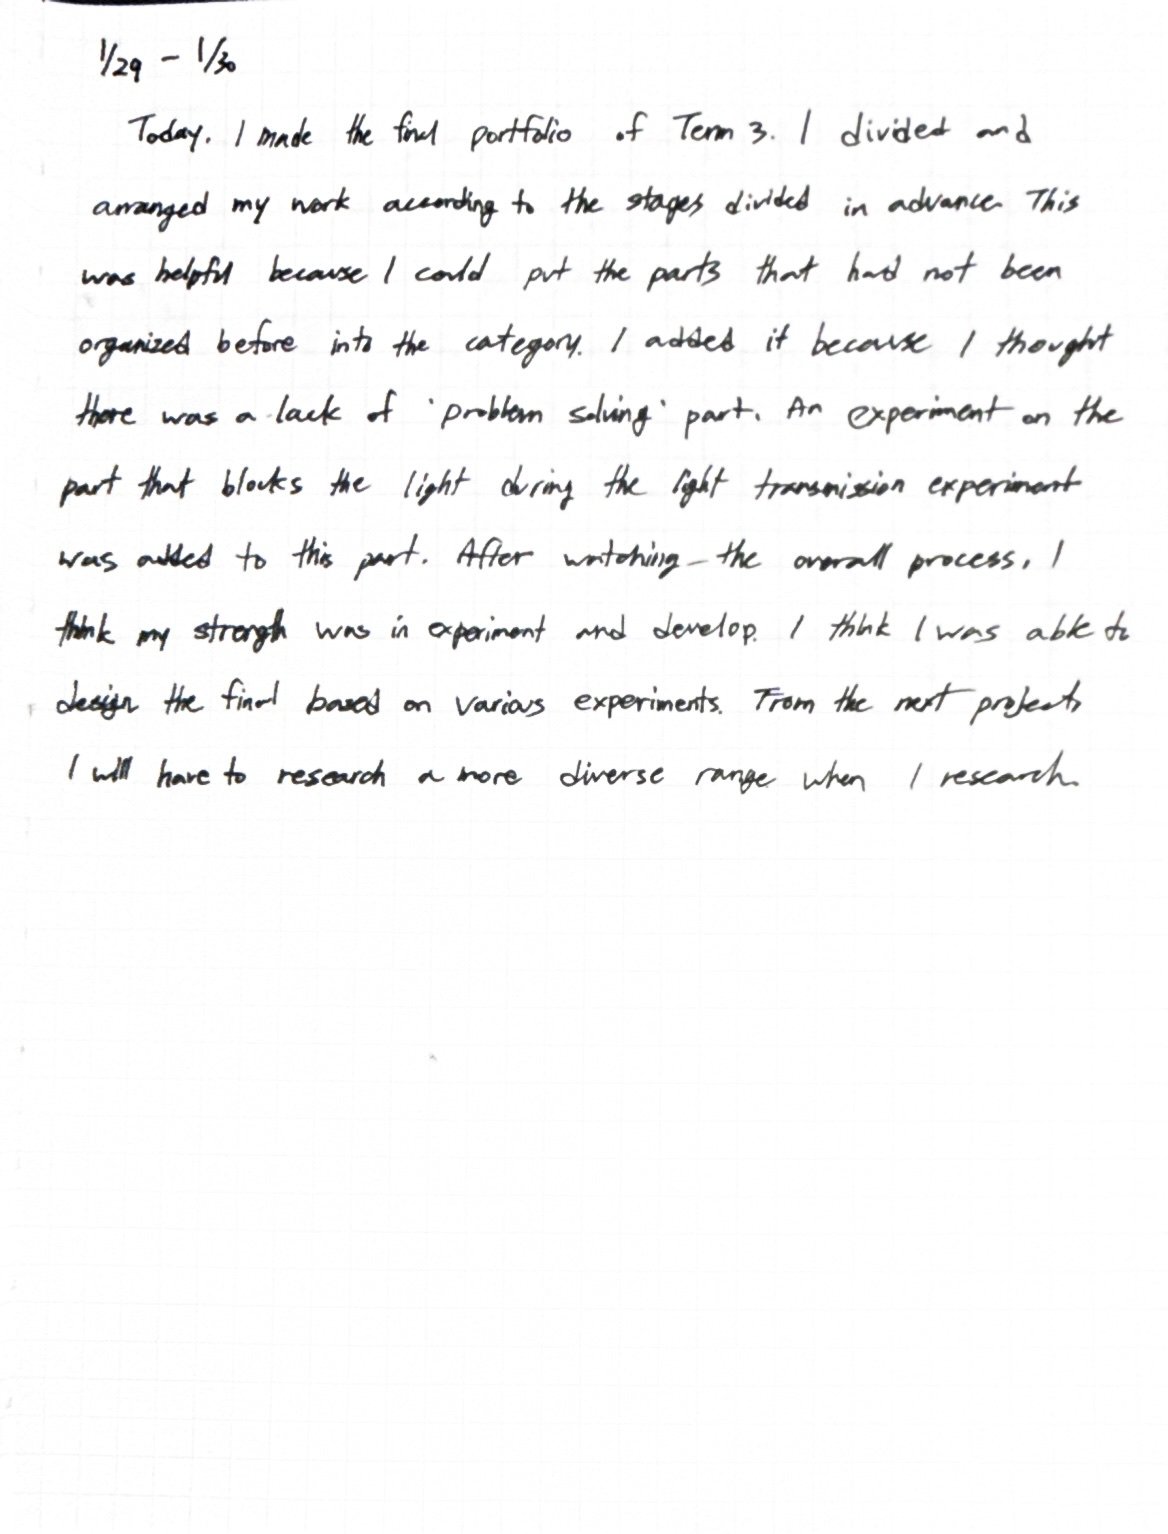 1/29 - 1/30
Today. I made the final portfolio of Term 3. I divided and
arranged my work according to the stages divided in advance. This
was helpful because I could put the parts that had not been
organized before into the category. I added it because I thought
there was a lack of 'problem solving' part. An experiment on the
part that blocks the light during the light transmission experiment
was added to this part. After watching the overall process, I
think my strength was in experiment and develop. I think I was able to
design the final based on various experiments. From the next project,
I will have to research a more diverse range when I research.